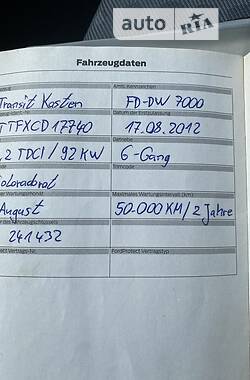 auto RIA
Fahrzeugdaten
Amtl. Kennzeichen
Transit Kasten FD-DW 7000
Datum der Erstzulassung
TTFXCD17740 17.08.2012
,2 TDCI / 92 KW 6-Gang
Trimcode
Coloradorot
Maximales Wartungsintervall (km)
August 50-000 KM / 2 Jahre
241432
FordProtect Vertragstyp